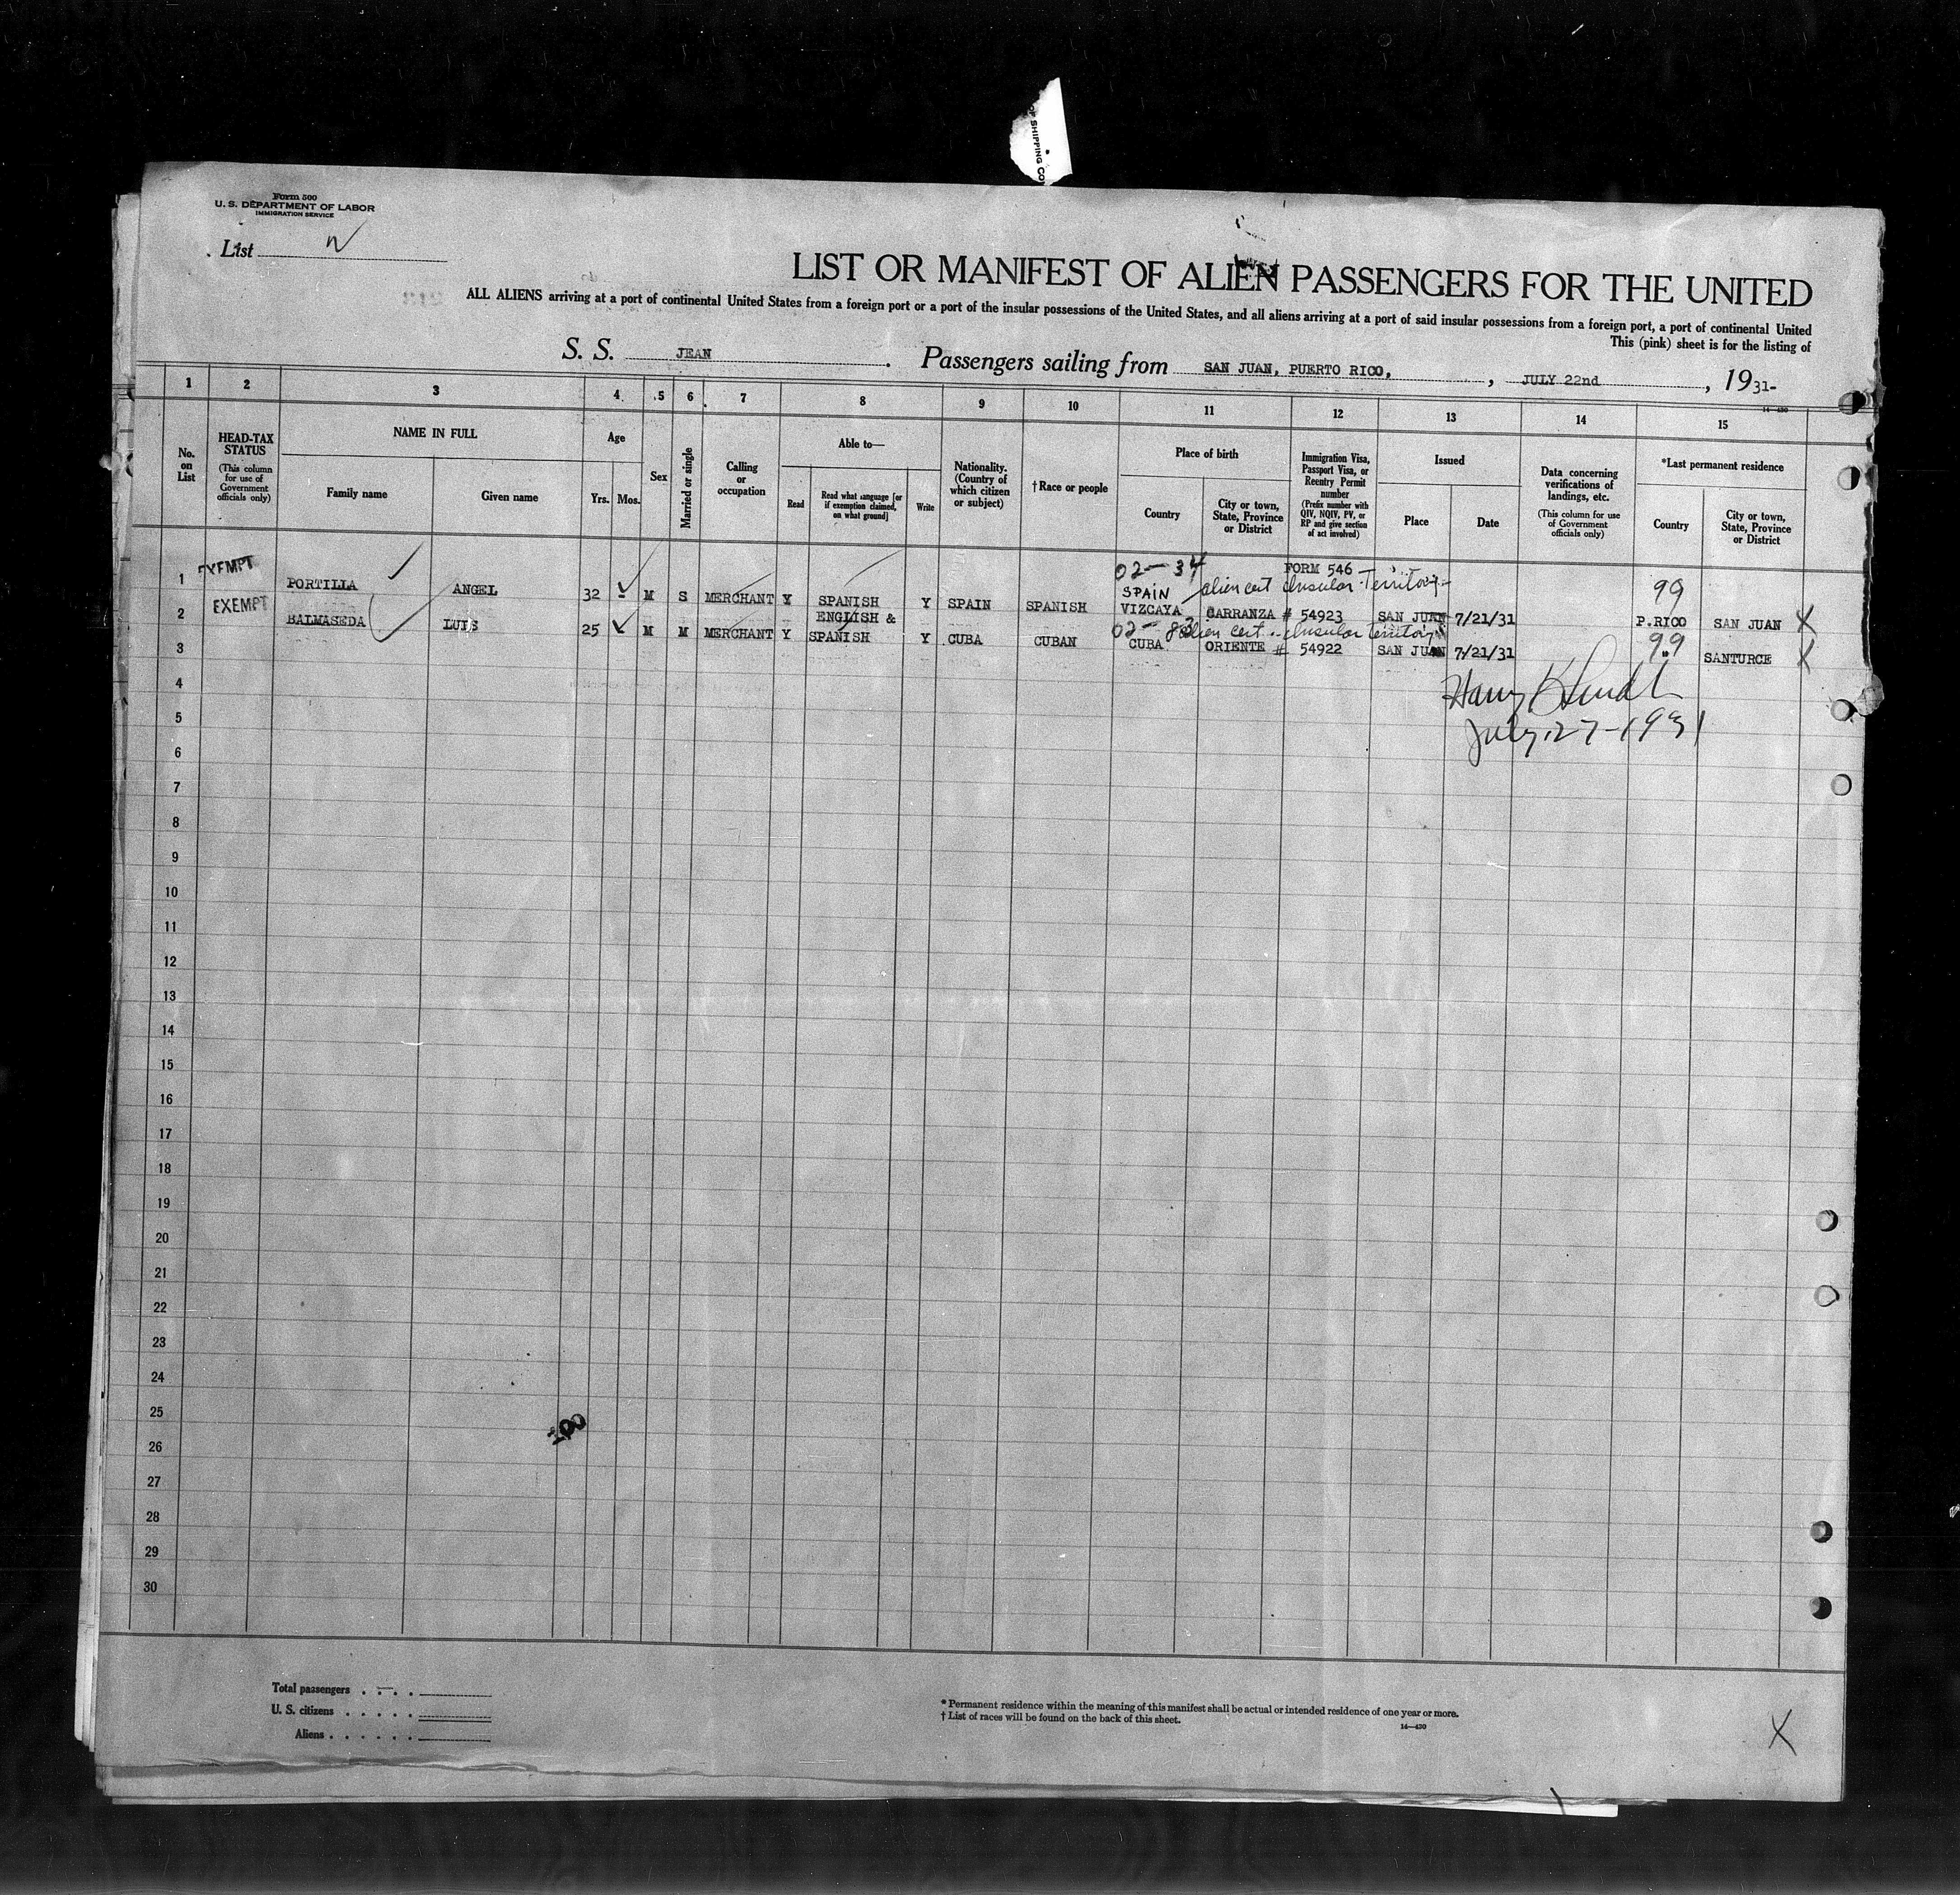 OF SHIPPING CO
Form 500
U. S. DEPARTMENT OF LABOR
IMMIGRATION SERVICE
List
LIST OR MANIFEST OF ALIEN PASSENGERS FOR THE UNITED
ALL ALIENS arriving at a port of continental United States from a foreign port or a port of the insular possessions of the United States, and all aliens arriving at a port of said insular possessions from a foreign port, a port of continental United
This (pink) sheet is for the listing of
S. S. JEAN . Passengers sailing from SAN JUAN, PUERTO RICO, , JULY 22nd , 1931-
14—430
1 2 3 4 5 6 7 8 9 10 11 12 13 14 15
No. on List
HEAD-TAX STATUS
(This column for use of Government officials only)
NAME IN FULL
Family name
Given name
Age
Yrs. Mos.
Sex
Married or single
Calling or occupation
Able to—
Read
Read what language [or if exemption claimed, on what ground]
Write
Nationality. (Country of which citizen or subject)
†Race or people
Place of birth
Country
City or town, State, Province or District
Immigration Visa, Passport Visa, or Reentry Permit number
(Prefix number with QIV, NQIV, PV, or RP and give section of act involved)
Issued
Place
Date
Data concerning verifications of landings, etc.
(This column for use of Government officials only)
*Last permanent residence
Country
City or town, State, Province or District
02-34 FORM 546
SPAIN alien cert Insular Territory
1 EXEMPT PORTILLA ANGEL 32 M S MERCHANT Y SPANISH Y SPAIN SPANISH VIZCAYA CARRANZA # 54923 SAN JUAN 7/21/31 99 P.RICO SAN JUAN X
ENGLISH &
02-83 alien cert. Insular Territory
2 EXEMPT BALMASEDA LUIS 25 M M MERCHANT Y SPANISH Y CUBA CUBAN CUBA ORIENTE # 54922 SAN JUAN 7/21/31 99 SANTURCE X
3
4
July 27-1931
5
6
7
8
9
10
11
12
13
14
15
16
17
18
19
20
21
22
23
24
25
26
27
28
29
30
Total passengers
U. S. citizens
Aliens
* Permanent residence within the meaning of this manifest shall be actual or intended residence of one year or more.
† List of races will be found on the back of this sheet.
14—430
X